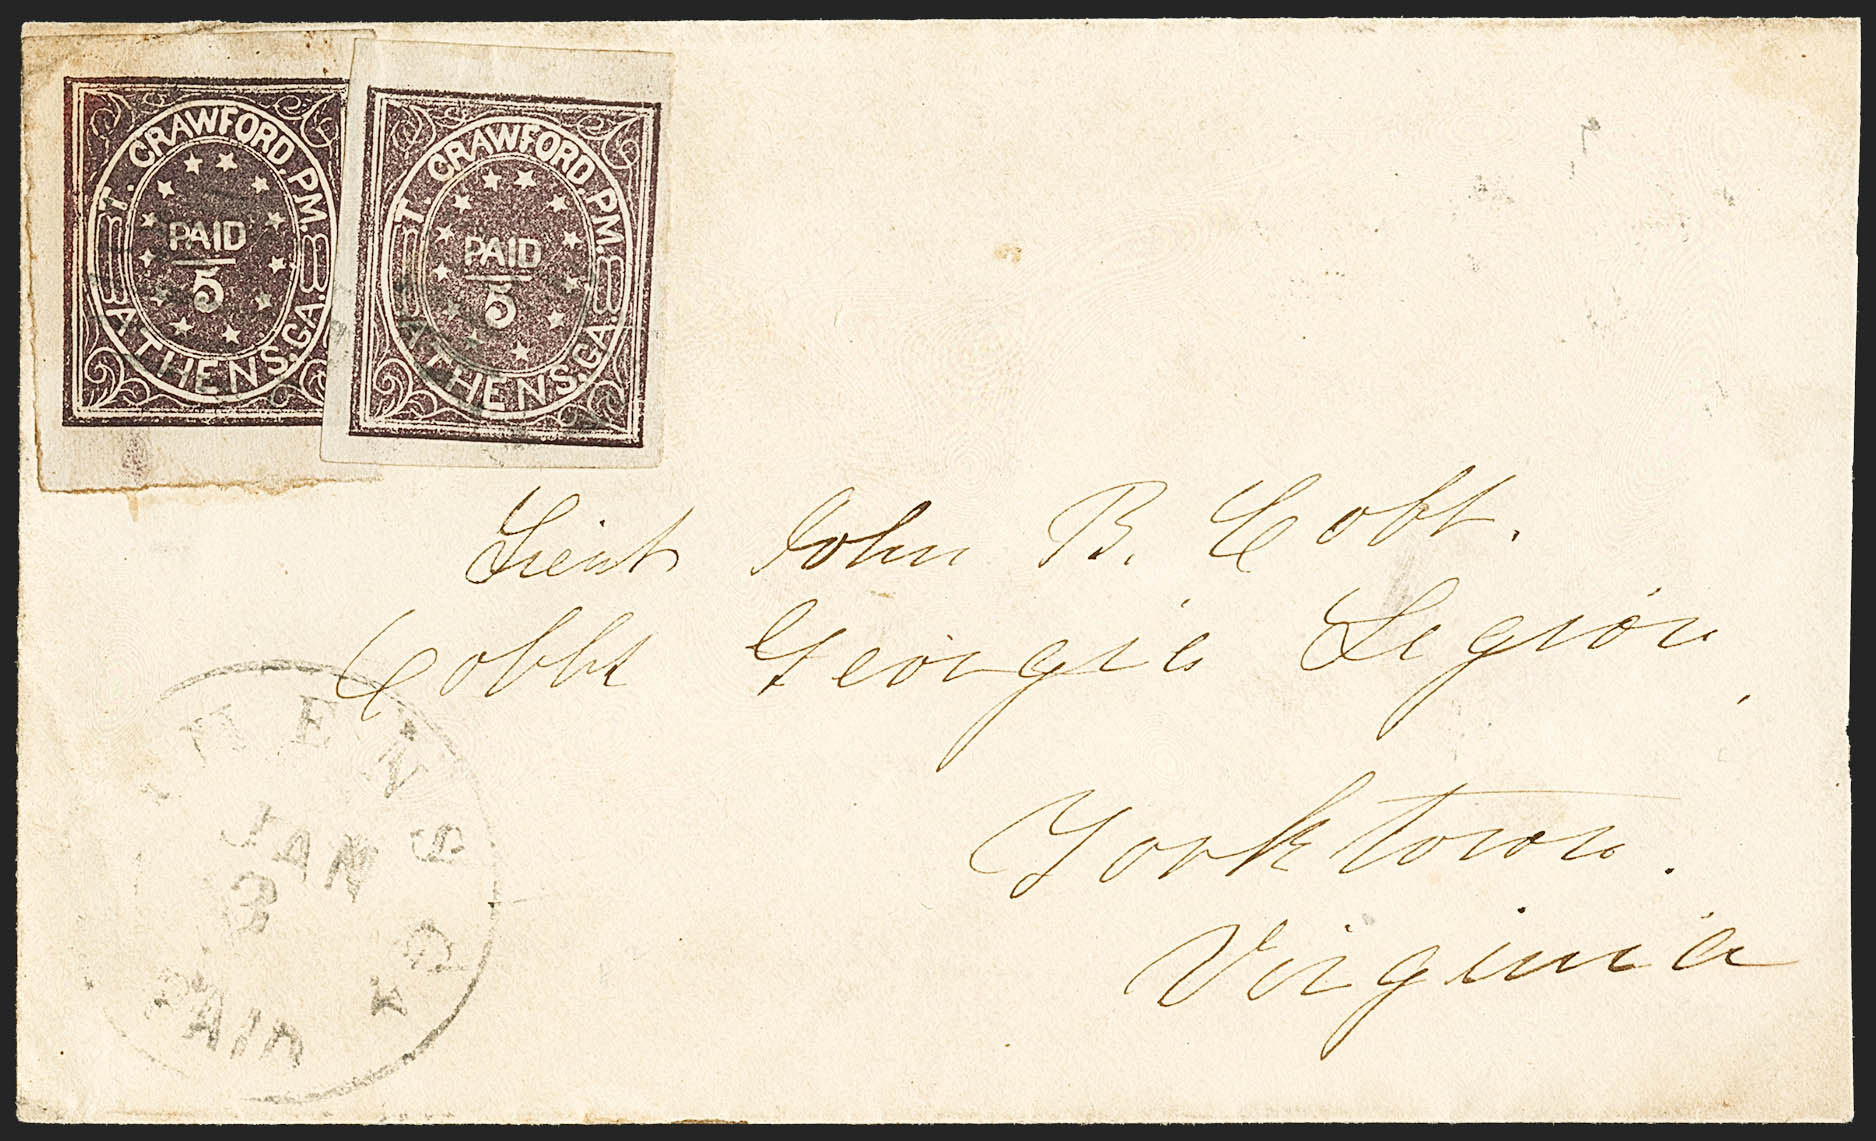 T. CRAWFORD, P.M.
PAID
5
ATHENS, GA.
T. CRAWFORD, P.M.
PAID
5
ATHENS, GA.
Lieut John B. Cobb.
Cobbs Georgia Legion,
Yorktown.
Virginia
THENS GA
JAN
3
PAID